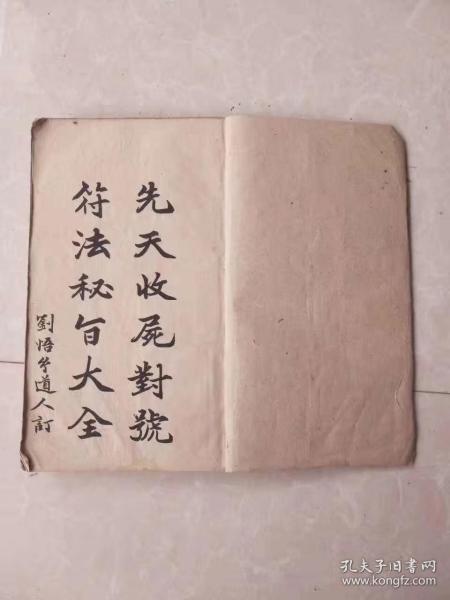 先天收屍對號
符法秘旨大全
劉悟兮道人訂
孔夫子旧书网
www.kongfz.com